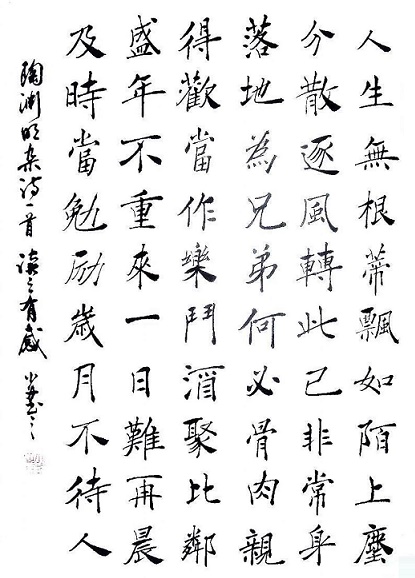 人生無根蒂飄如陌上塵
分散逐風轉此已非常身
落地為兄弟何必骨肉親
得歡當作樂鬥酒聚比鄰
盛年不重來一日難再晨
及時當勉励歲月不待人
陶渊明杂诗一首 读之有感